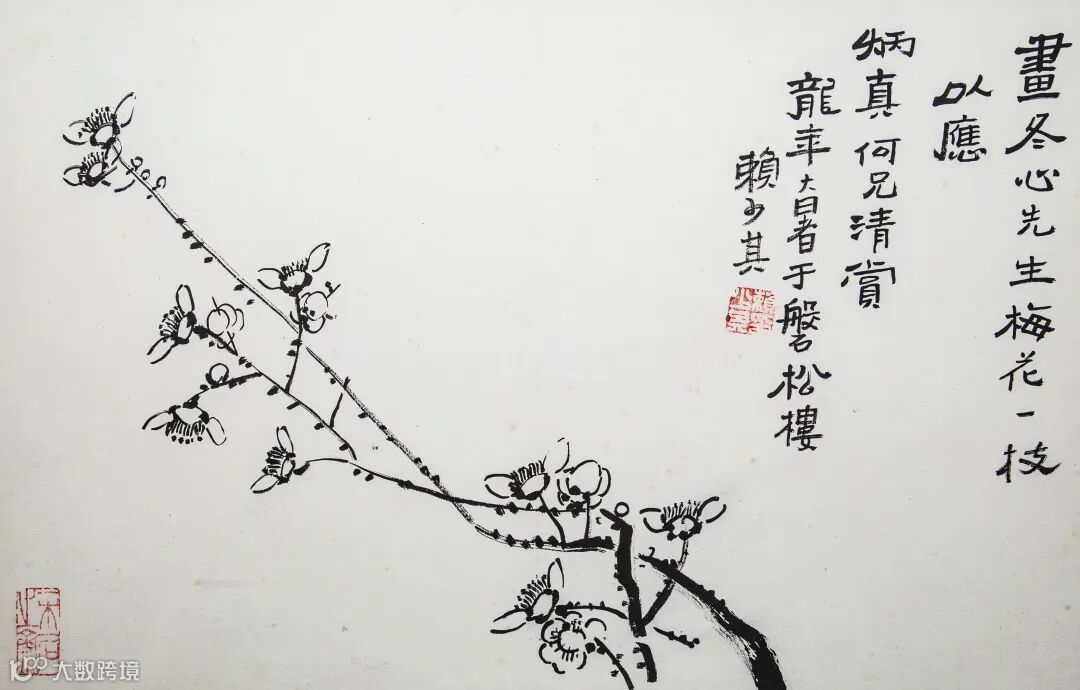 畫冬心先生梅花一枝
以應
炳真何兄清賞
龍年大暑于磐松樓
賴少其
大数跨境